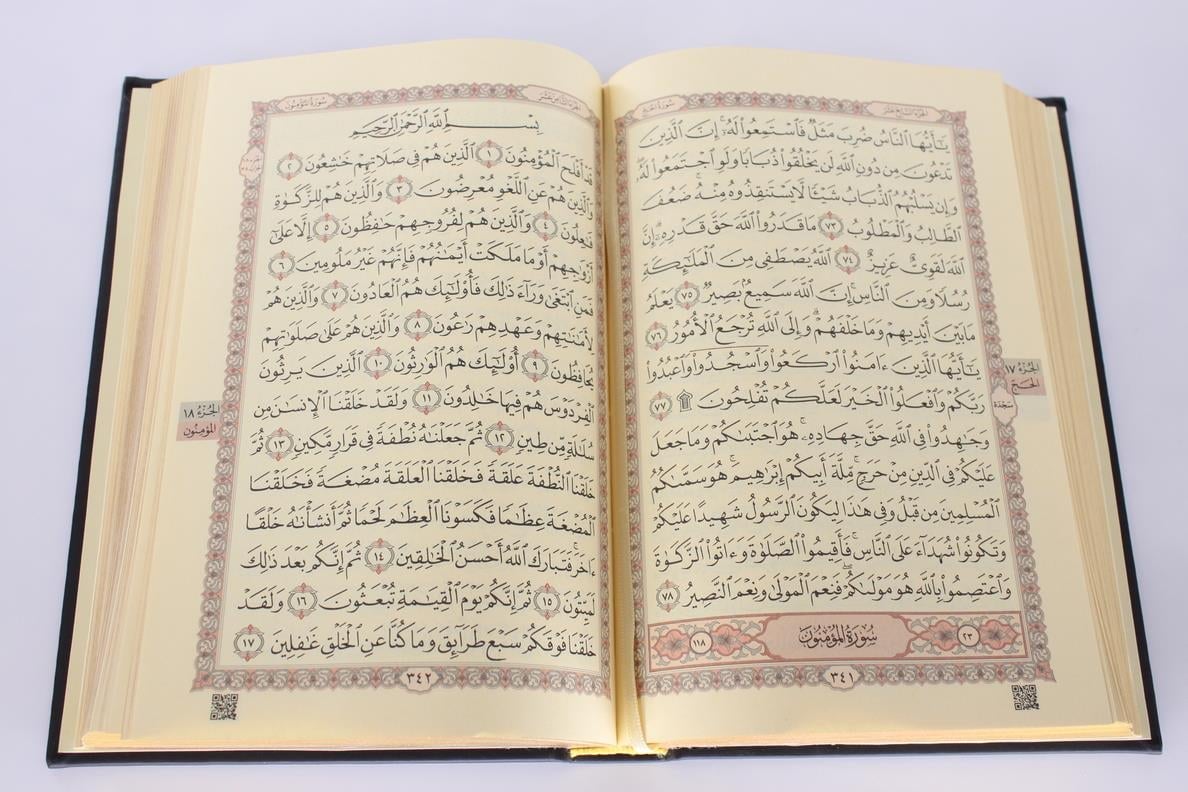 الجزء السابع عشر
سورة الحج
يَٰٓأَيُّهَا ٱلنَّاسُ ضُرِبَ مَثَلٞ فَٱسۡتَمِعُواْ لَهُۥٓۚ إِنَّ ٱلَّذِينَ
تَدۡعُونَ مِن دُونِ ٱللَّهِ لَن يَخۡلُقُواْ ذُبَابٗا وَلَوِ ٱجۡتَمَعُواْ لَهُۥۖ
وَإِن يَسۡلُبۡهُمُ ٱلذُّبَابُ شَيۡـٔٗا لَّا يَسۡتَنقِذُوهُ مِنۡهُۚ ضَعُفَ
ٱلطَّالِبُ وَٱلۡمَطۡلُوبُ ٧٣ مَا قَدَرُواْ ٱللَّهَ حَقَّ قَدۡرِهِۦٓۚ إِنَّ
ٱللَّهَ لَقَوِيٌّ عَزِيزٌ ٧٤ ٱللَّهُ يَصۡطَفِي مِنَ ٱلۡمَلَٰٓئِكَةِ
رُسُلٗا وَمِنَ ٱلنَّاسِۚ إِنَّ ٱللَّهَ سَمِيعُۢ بَصِيرٞ ٧٥ يَعۡلَمُ
مَا بَيۡنَ أَيۡدِيهِمۡ وَمَا خَلۡفَهُمۡۚ وَإِلَى ٱللَّهِ تُرۡجَعُ ٱلۡأُمُورُ ٧٦
يَٰٓأَيُّهَا ٱلَّذِينَ ءَامَنُواْ ٱرۡكَعُواْ وَٱسۡجُدُواْۤ وَٱعۡبُدُواْ
رَبَّكُمۡ وَٱفۡعَلُواْ ٱلۡخَيۡرَ لَعَلَّكُمۡ تُفۡلِحُونَ ۩ ٧٧
وَجَٰهِدُواْ فِي ٱللَّهِ حَقَّ جِهَادِهِۦۚ هُوَ ٱجۡتَبَىٰكُمۡ وَمَا جَعَلَ
عَلَيۡكُمۡ فِي ٱلدِّينِ مِنۡ حَرَجٖۚ مِّلَّةَ أَبِيكُمۡ إِبۡرَٰهِيمَۚ هُوَ سَمَّىٰكُمُ
ٱلۡمُسۡلِمِينَ مِن قَبۡلُ وَفِي هَٰذَا لِيَكُونَ ٱلرَّسُولُ شَهِيدًا عَلَيۡكُمۡ
وَتَكُونُواْ شُهَدَآءَ عَلَى ٱلنَّاسِۚ فَأَقِيمُواْ ٱلصَّلَوٰةَ وَءَاتُواْ ٱلزَّكَوٰةَ
وَٱعۡتَصِمُواْ بِٱللَّهِ هُوَ مَوۡلَىٰكُمۡۖ فَنِعۡمَ ٱلۡمَوۡلَىٰ وَنِعۡمَ ٱلنَّصِيرُ ٧٨
٢٣ سُورَةُ المُؤۡمِنُونَ ١١٨
٣٤١
الجُزۡءُ ١٧
الحَجّ
سَجۡدَة
الجزء الثامن عشر
سورة المؤمنون
بِسۡمِ ٱللَّهِ ٱلرَّحۡمَٰنِ ٱلرَّحِيمِ
قَدۡ أَفۡلَحَ ٱلۡمُؤۡمِنُونَ ١ ٱلَّذِينَ هُمۡ فِي صَلَاتِهِمۡ خَٰشِعُونَ ٢
وَٱلَّذِينَ هُمۡ عَنِ ٱللَّغۡوِ مُعۡرِضُونَ ٣ وَٱلَّذِينَ هُمۡ لِلزَّكَوٰةِ
فَٰعِلُونَ ٤ وَٱلَّذِينَ هُمۡ لِفُرُوجِهِمۡ حَٰفِظُونَ ٥ إِلَّا عَلَىٰٓ
أَزۡوَٰجِهِمۡ أَوۡ مَا مَلَكَتۡ أَيۡمَٰنُهُمۡ فَإِنَّهُمۡ غَيۡرُ مَلُومِينَ ٦
فَمَنِ ٱبۡتَغَىٰ وَرَآءَ ذَٰلِكَ فَأُوْلَٰٓئِكَ هُمُ ٱلۡعَادُونَ ٧ وَٱلَّذِينَ هُمۡ
لِأَمَٰنَٰتِهِمۡ وَعَهۡدِهِمۡ رَٰعُونَ ٨ وَٱلَّذِينَ هُمۡ عَلَىٰ صَلَوَٰتِهِمۡ
يُحَافِظُونَ ٩ أُوْلَٰٓئِكَ هُمُ ٱلۡوَٰرِثُونَ ١٠ ٱلَّذِينَ يَرِثُونَ
ٱلۡفِرۡدَوۡسَ هُمۡ فِيهَا خَٰلِدُونَ ١١ وَلَقَدۡ خَلَقۡنَا ٱلۡإِنسَٰنَ مِن
سُلَٰلَةٖ مِّن طِينٖ ١٢ ثُمَّ جَعَلۡنَٰهُ نُطۡفَةٗ فِي قَرَارٖ مَّكِينٖ ١٣ ثُمَّ
خَلَقۡنَا ٱلنُّطۡفَةَ عَلَقَةٗ فَخَلَقۡنَا ٱلۡعَلَقَةَ مُضۡغَةٗ فَخَلَقۡنَا
ٱلۡمُضۡغَةَ عِظَٰمٗا فَكَسَوۡنَا ٱلۡعِظَٰمَ لَحۡمٗا ثُمَّ أَنشَأۡنَٰهُ خَلۡقًا
ءَاخَرَۚ فَتَبَارَكَ ٱللَّهُ أَحۡسَنُ ٱلۡخَٰلِقِينَ ١٤ ثُمَّ إِنَّكُم بَعۡدَ ذَٰلِكَ
لَمَيِّتُونَ ١٥ ثُمَّ إِنَّكُمۡ يَوۡمَ ٱلۡقِيَٰمَةِ تُبۡعَثُونَ ١٦ وَلَقَدۡ
خَلَقۡنَا فَوۡقَكُمۡ سَبۡعَ طَرَآئِقَ وَمَا كُنَّا عَنِ ٱلۡخَلۡقِ غَٰفِلِينَ ١٧
٣٤٢
الجُزۡءُ ١٨
المُؤۡمِنُون